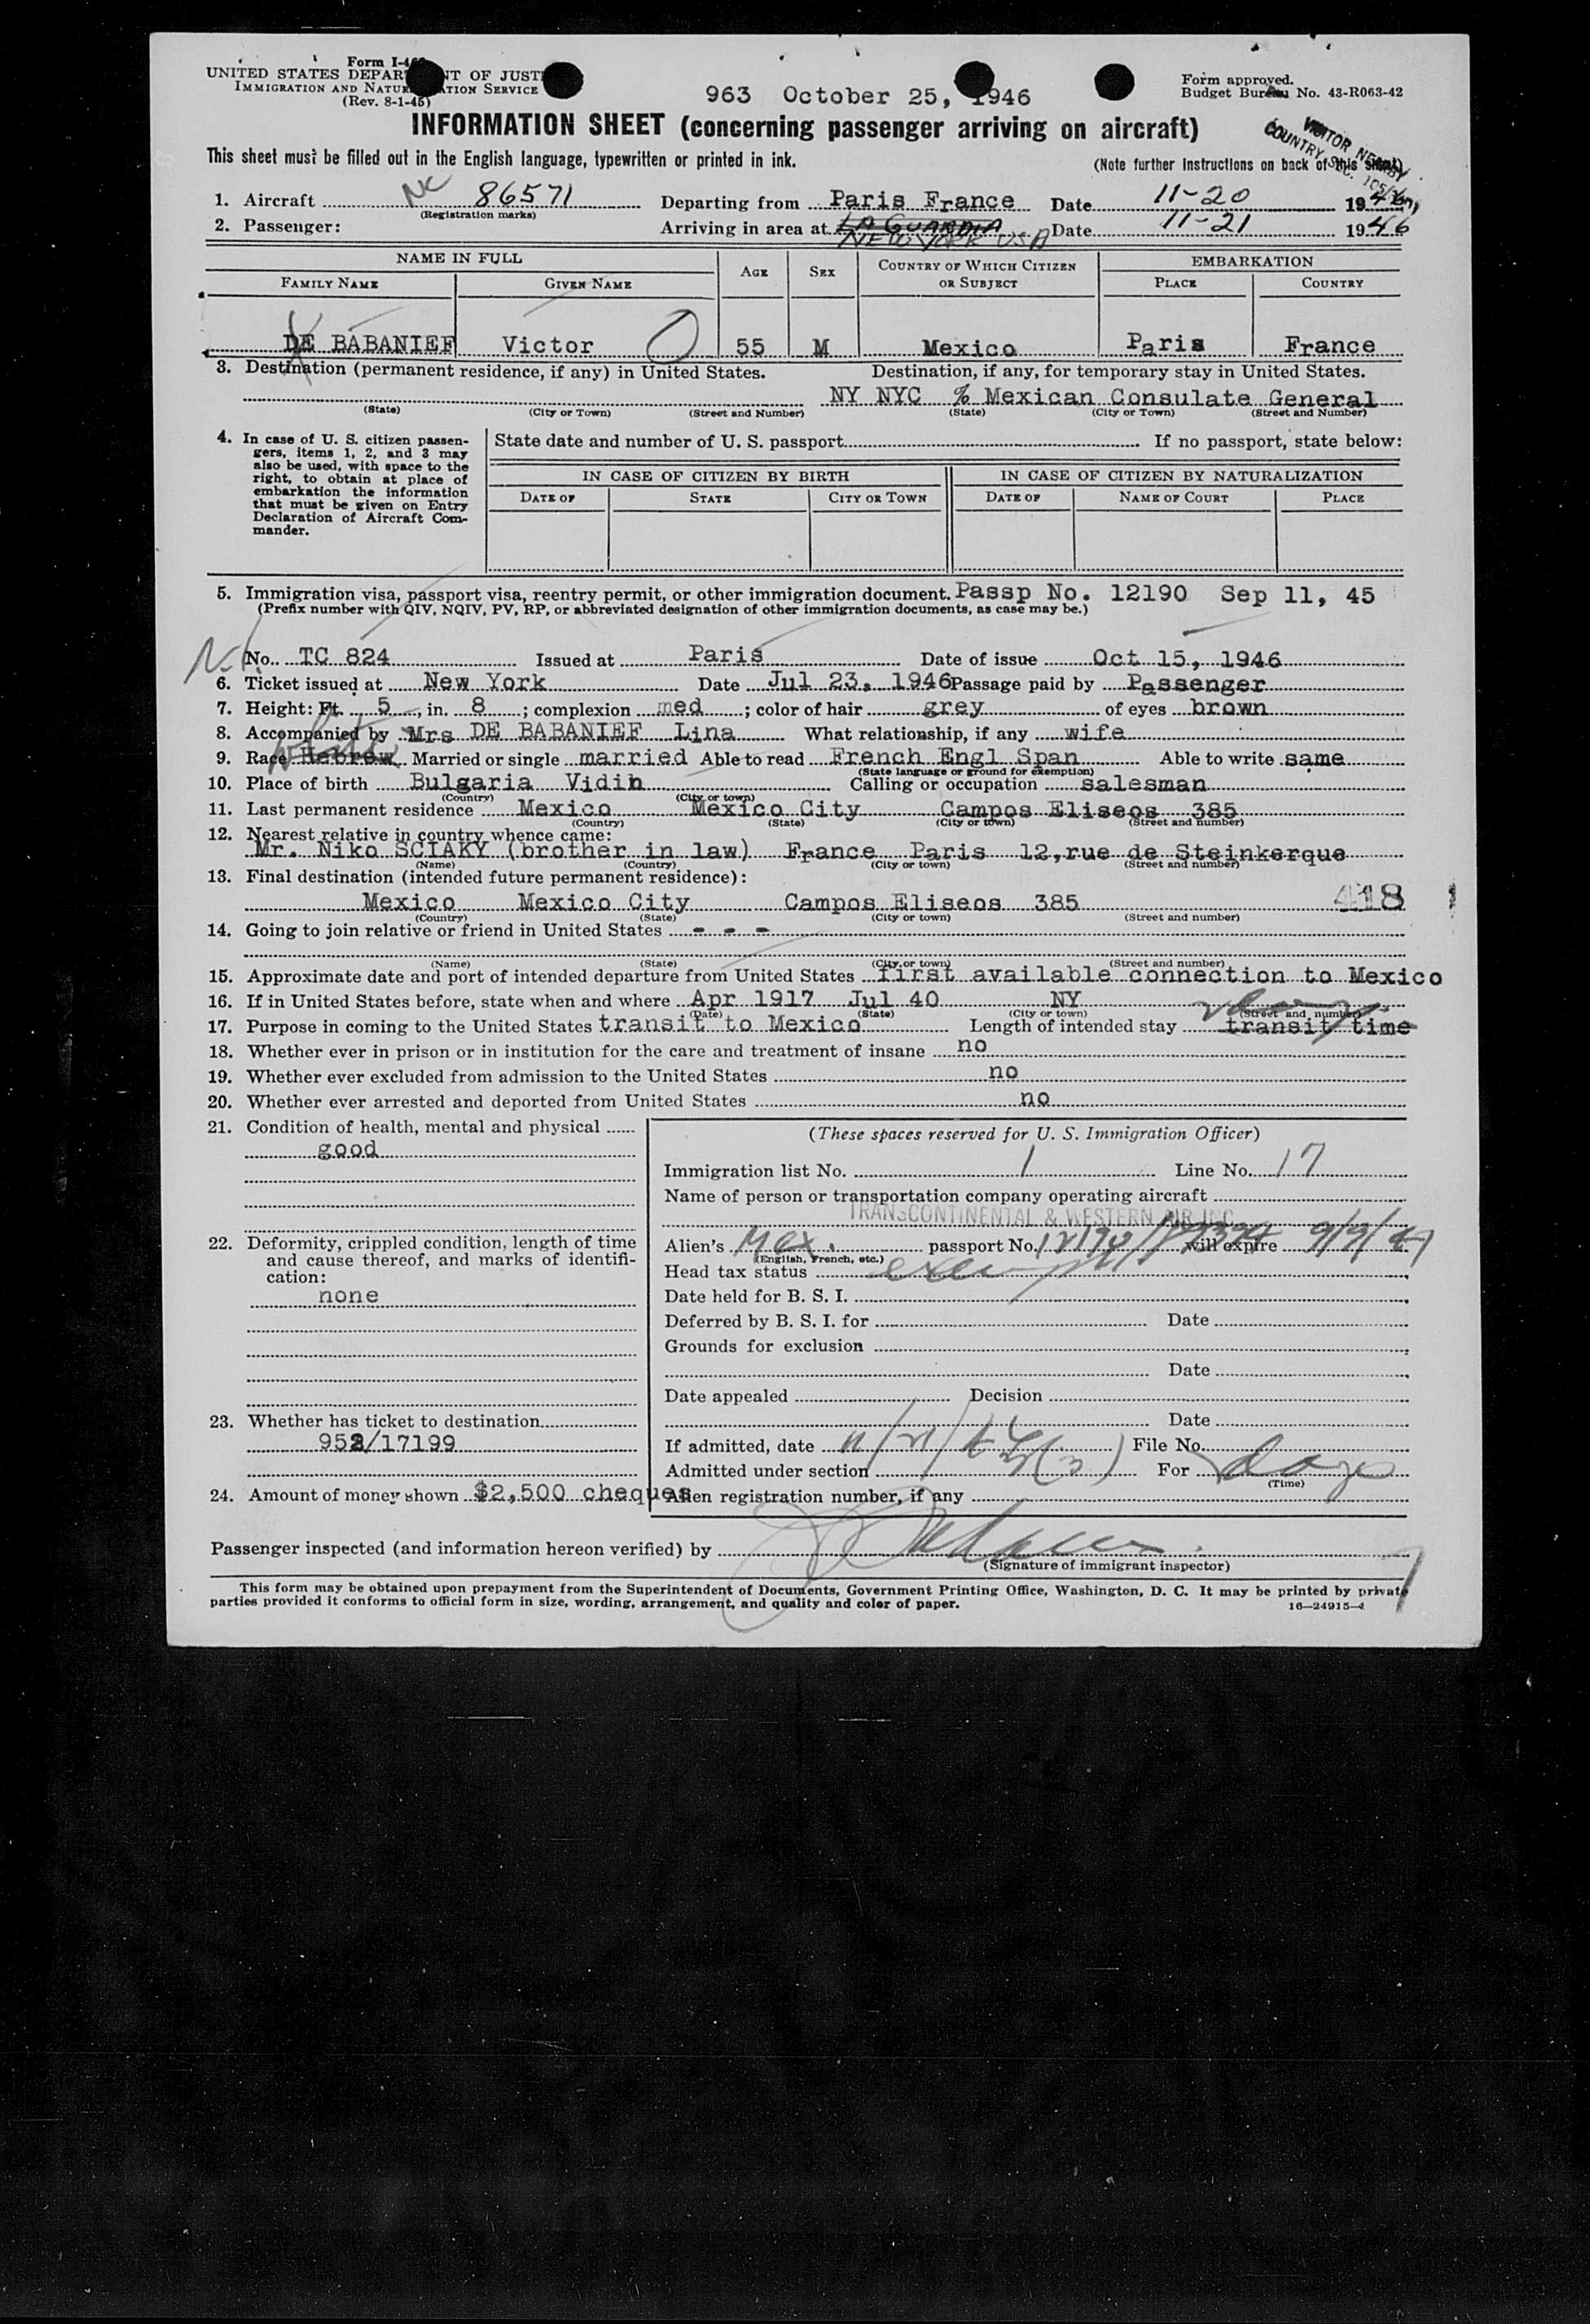 Form I-4
UNITED STATES DEPAR NT OF JUST
IMMIGRATION AND NATUR TION SERVICE
(Rev. 8-1-45)
Form approved.
Budget Bureau No. 43-R063-42
963 October 25, 1946
INFORMATION SHEET (concerning passenger arriving on aircraft)
VISITOR NEARBY
COUNTRY SEC.
This sheet must be filled out in the English language, typewritten or printed in ink. (Note further instructions on back of this sheet)
1. Aircraft NC 86571 Departing from Paris France Date 11-20 1946
(Registration marks)
2. Passenger: Arriving in area at LA GUARDIA Date 11-21 1946
NEW YORK USA
NAME IN FULL AGE SEX COUNTRY OF WHICH CITIZEN OR SUBJECT EMBARKATION
FAMILY NAME GIVEN NAME PLACE COUNTRY
DE BABANIEF Victor 55 M Mexico Paris France
3. Destination (permanent residence, if any) in United States. Destination, if any, for temporary stay in United States.
NY NYC % Mexican Consulate General
(State) (City or Town) (Street and Number) (State) (City or Town) (Street and Number)
4. In case of U. S. citizen passengers, items 1, 2, and 3 may also be used, with space to the right, to obtain at place of embarkation the information that must be given on Entry Declaration of Aircraft Commander.
State date and number of U. S. passport If no passport, state below:
IN CASE OF CITIZEN BY BIRTH IN CASE OF CITIZEN BY NATURALIZATION
DATE OF STATE CITY OR TOWN DATE OF NAME OF COURT PLACE
5. Immigration visa, passport visa, reentry permit, or other immigration document. Passp No. 12190 Sep 11, 45
(Prefix number with QIV, NQIV, PV, RP, or abbreviated designation of other immigration documents, as case may be.)
No. TC 824 Issued at Paris Date of issue Oct 15, 1946
6. Ticket issued at New York Date Jul 23, 1946 Passage paid by Passenger
7. Height: Ft. 5, in. 8; complexion med; color of hair grey of eyes brown
8. Accompanied by Mrs DE BABANIEF Lina What relationship, if any wife
9. Race Hebrew white Married or single married Able to read French Engl Span Able to write same
(State language or ground for exemption)
10. Place of birth Bulgaria Vidin Calling or occupation salesman
(Country) (City or town)
11. Last permanent residence Mexico Mexico City Campos Eliseos 385
(Country) (State) (City or town) (Street and number)
12. Nearest relative in country whence came:
Mr. Niko SCIAKY (brother in law) France Paris 12,rue de Steinkerque
(Name) (Country) (City or town) (Street and number)
13. Final destination (intended future permanent residence):
Mexico Mexico City Campos Eliseos 385 418
(Country) (State) (City or town) (Street and number)
14. Going to join relative or friend in United States - - -
(Name) (State) (City or town) (Street and number)
15. Approximate date and port of intended departure from United States first available connection to Mexico
16. If in United States before, state when and where Apr 1917 Jul 40 NY
(Date) (State) (City or town) (Street and number)
17. Purpose in coming to the United States transit to Mexico Length of intended stay transit time
18. Whether ever in prison or in institution for the care and treatment of insane no
19. Whether ever excluded from admission to the United States no
20. Whether ever arrested and deported from United States no
21. Condition of health, mental and physical
good
22. Deformity, crippled condition, length of time and cause thereof, and marks of identification:
none
23. Whether has ticket to destination
952/17199
24. Amount of money shown $2,500 cheques
(These spaces reserved for U. S. Immigration Officer)
Immigration list No. 1 Line No. 17
Name of person or transportation company operating aircraft
TRANSCONTINENTAL & WESTERN AIR INC
Alien's Mex. passport No. will expire 9/9/47
(English, French, etc.)
Head tax status exempt
Date held for B. S. I.
Deferred by B. S. I. for Date
Grounds for exclusion
Date
Date appealed Decision
Date
If admitted, date 11/21/46 File No.
Admitted under section 3(3) For days
(Time)
Alien registration number, if any
Passenger inspected (and information hereon verified) by
(Signature of immigrant inspector)
This form may be obtained upon prepayment from the Superintendent of Documents, Government Printing Office, Washington, D. C. It may be printed by private
parties provided it conforms to official form in size, wording, arrangement, and quality and color of paper. 16—24915-4